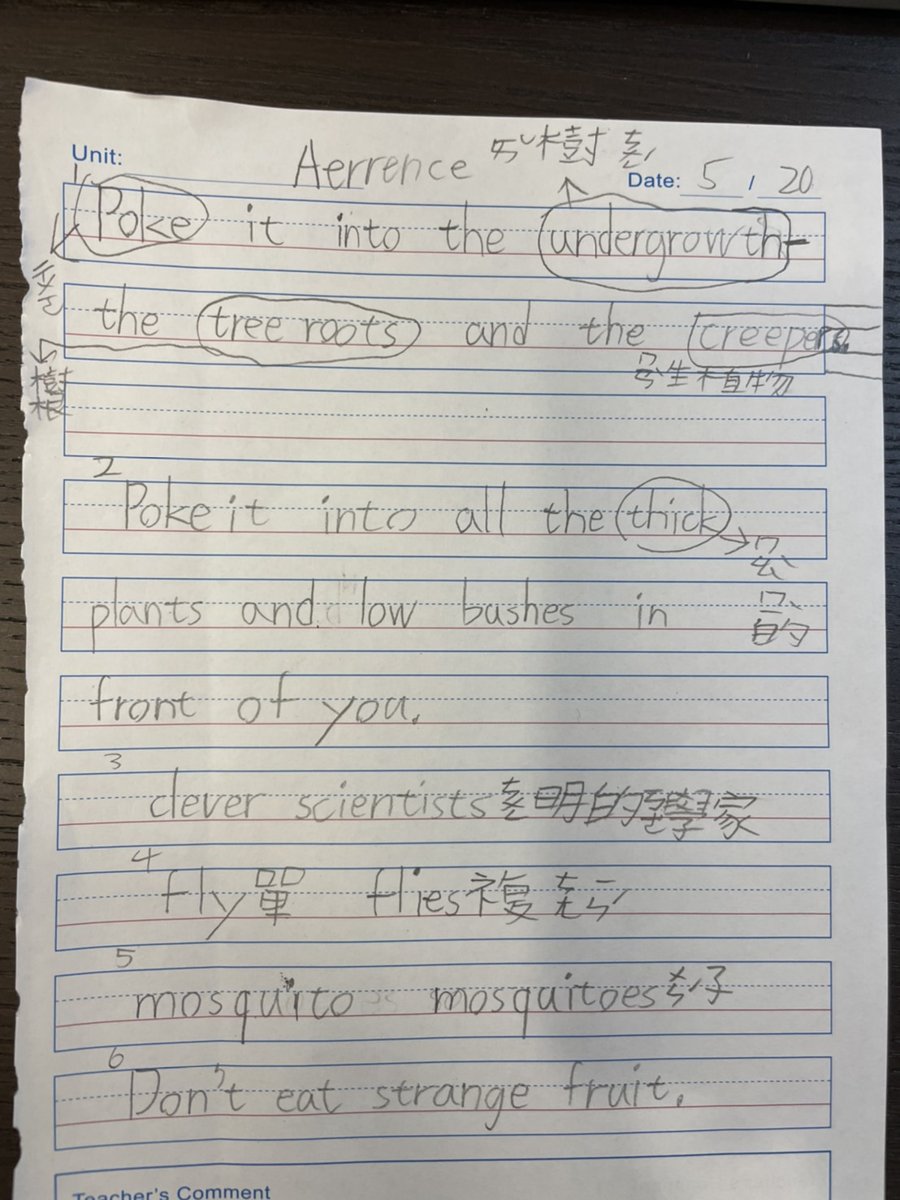 Unit:
Aerrence ㄞˇ樹ㄘㄨㄥˊ
Date: 5 / 20
1
Poke it into the undergrowth-
the tree roots and the creepers.
樹
根
生植物
2
Poke it into all the thick
plants and low bushes in
的
front of you.
3
clever scientists 明的 學家
4
fly單 flies複
5
mosquito mosquitoes 子
6
Don't eat strange fruit.
Teacher's Comment